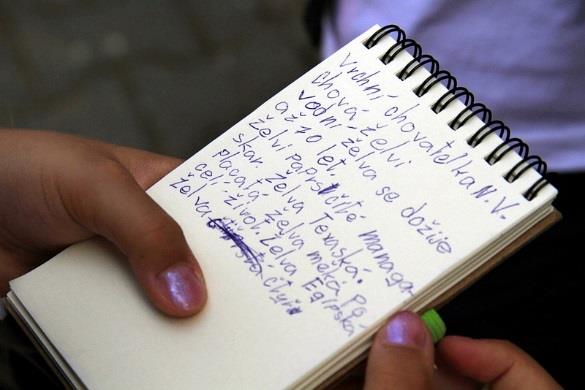 Vrchní chovatelka N. V.
chová želvi
vodní želva se dožije
až 70 let.
želvi papističté managa-
skar. Želva Texaská.
Placatá želva měká po
celí život. Želva Egipska
želva čtyři